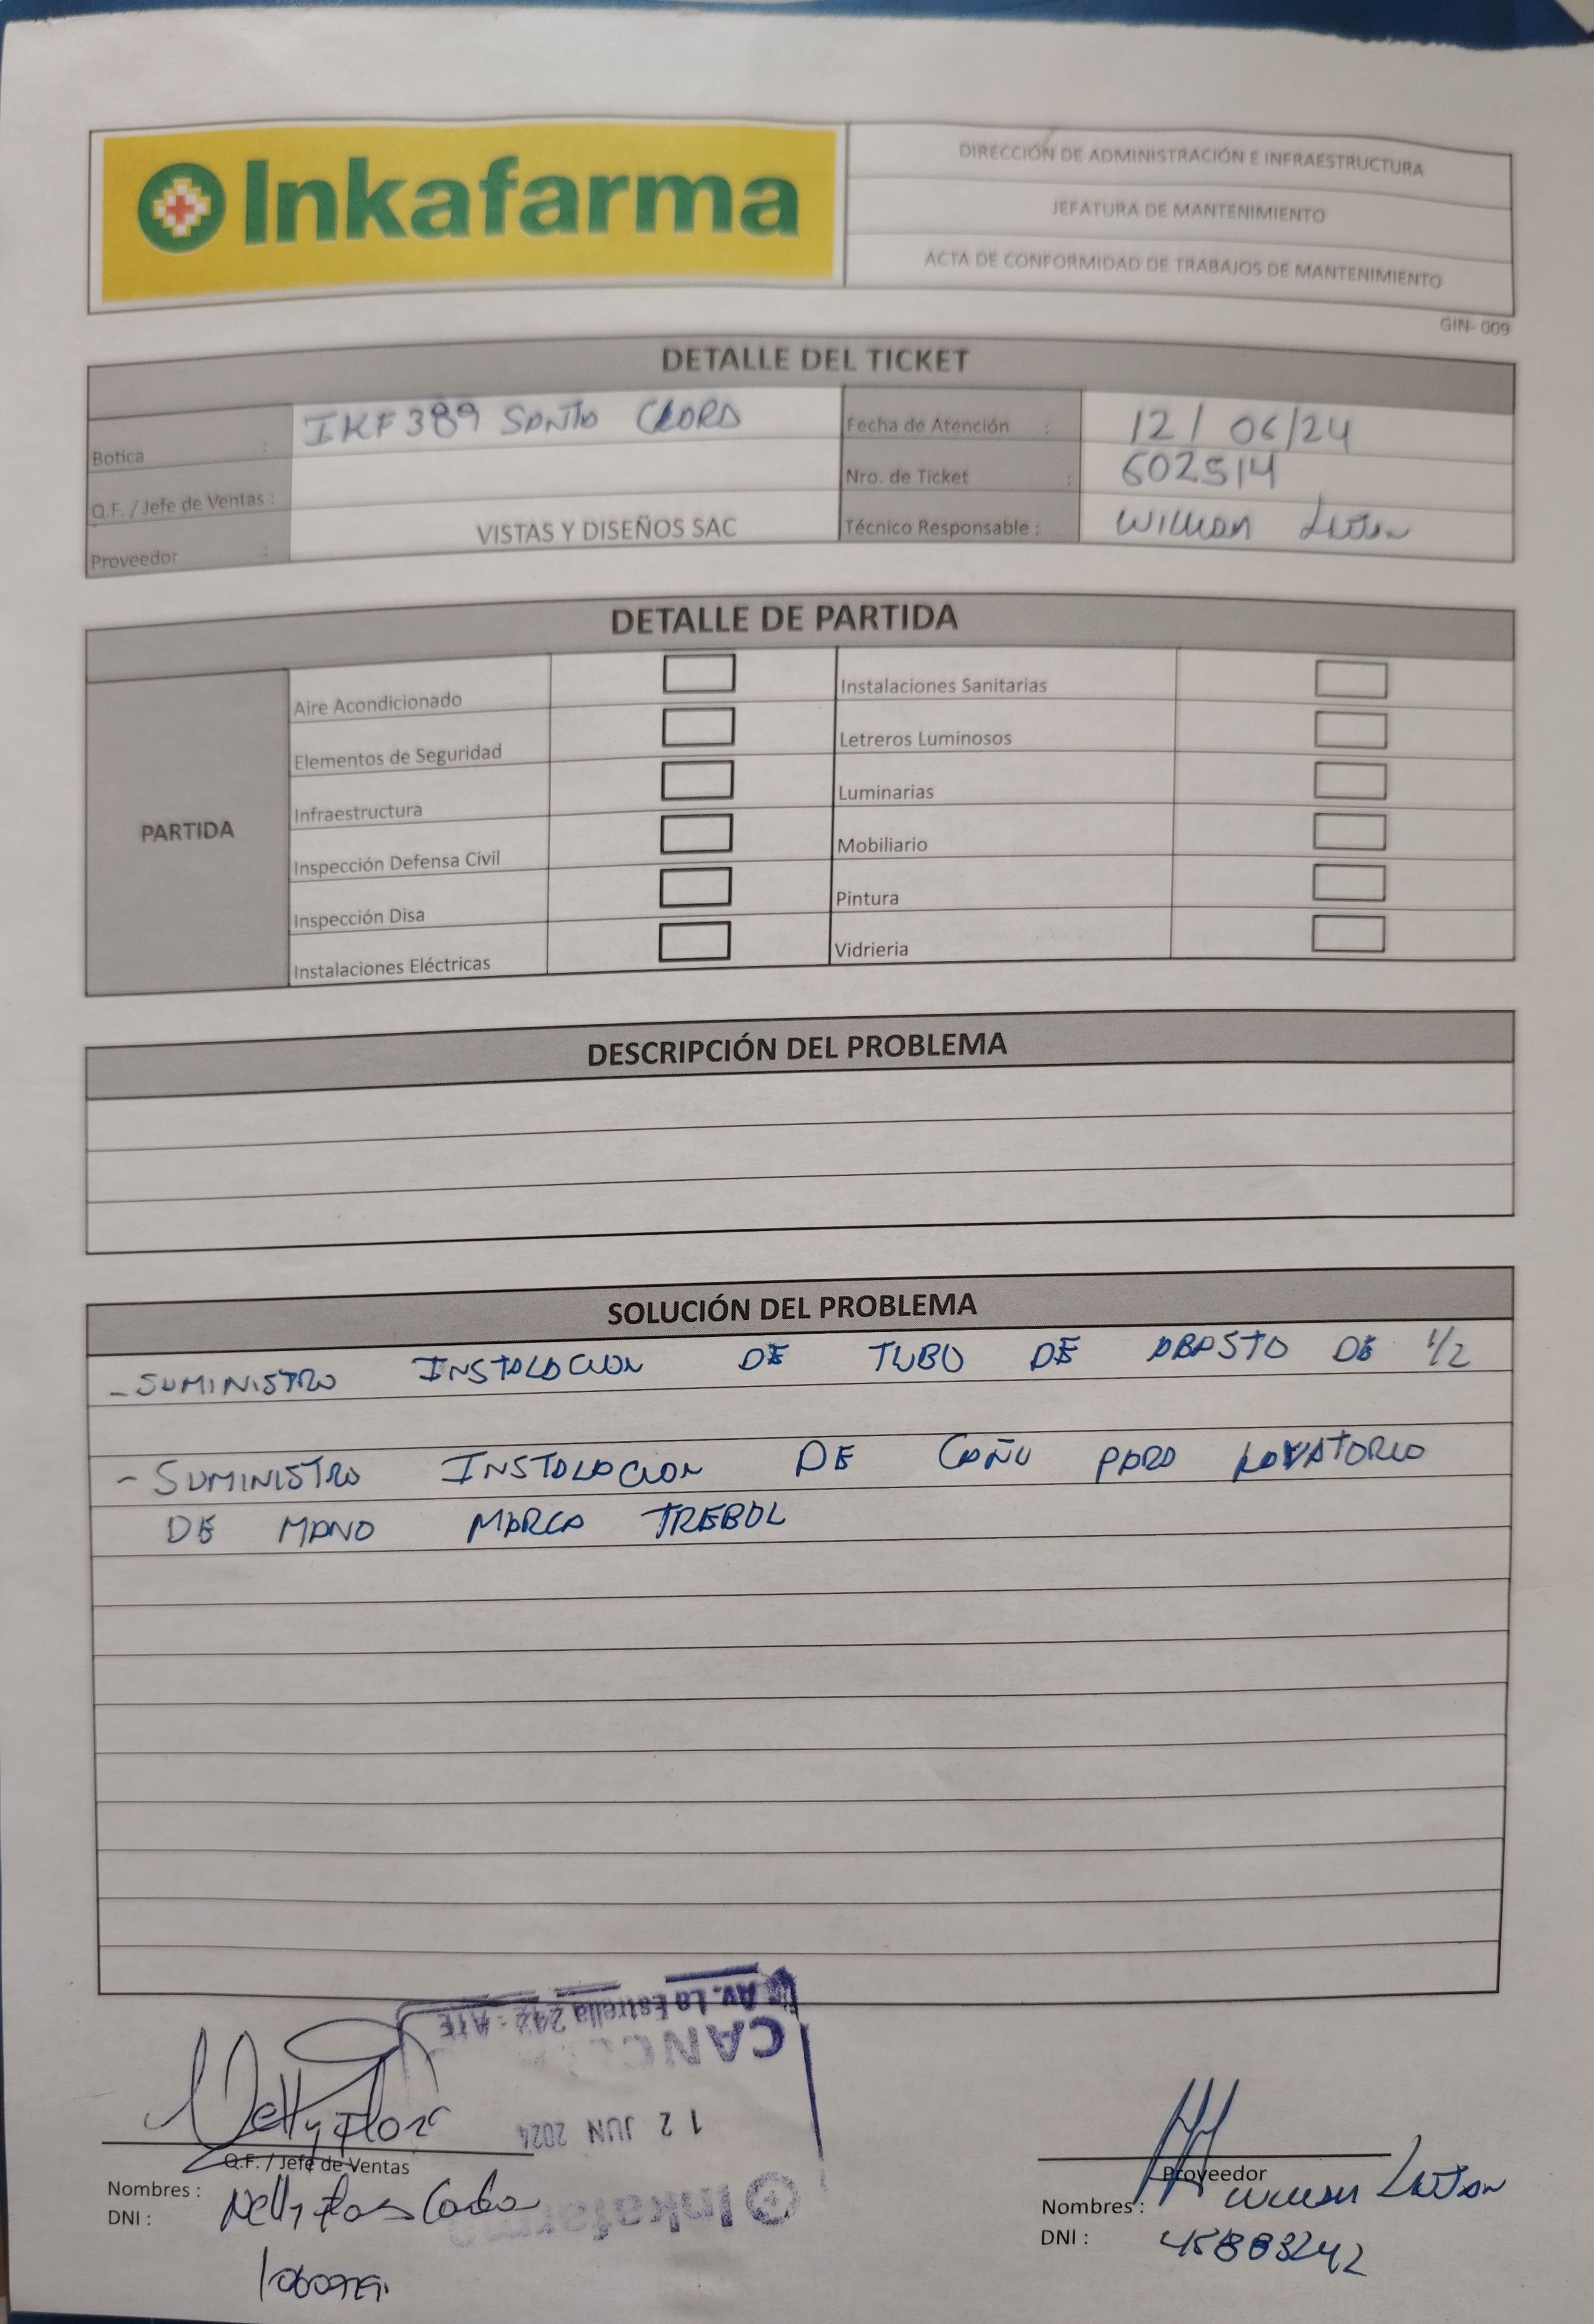 Inkafarma
DIRECCIÓN DE ADMINISTRACIÓN E INFRAESTRUCTURA
JEFATURA DE MANTENIMIENTO
ACTA DE CONFORMIDAD DE TRABAJOS DE MANTENIMIENTO
GIN- 009
DETALLE DEL TICKET
Botica : IKF 389 SANTA CLARA
Fecha de Atención : 12/06/24
Q.F. / Jefe de Ventas :
Nro. de Ticket : 602514
Proveedor : VISTAS Y DISEÑOS SAC
Técnico Responsable : WILLIAM
DETALLE DE PARTIDA
PARTIDA
Aire Acondicionado
Instalaciones Sanitarias
Elementos de Seguridad
Letreros Luminosos
Infraestructura
Luminarias
Inspección Defensa Civil
Mobiliario
Inspección Disa
Pintura
Instalaciones Eléctricas
Vidrieria
DESCRIPCIÓN DEL PROBLEMA
SOLUCIÓN DEL PROBLEMA
- SUMINISTRO INSTALACION DE TUBO DE ABASTO DE 1/2
- SUMINISTRO INSTALACION DE CAÑO PARA LAVATORIO
DE MANO MARCA TREBOL
Av. La Estrella 242 - ATE
12 JUN 2024
Inkafarma
Nelly Flores
Q.F. / Jefe de Ventas
Nombres : Nelly
DNI :
Proveedor
Nombres :
DNI : 45883242